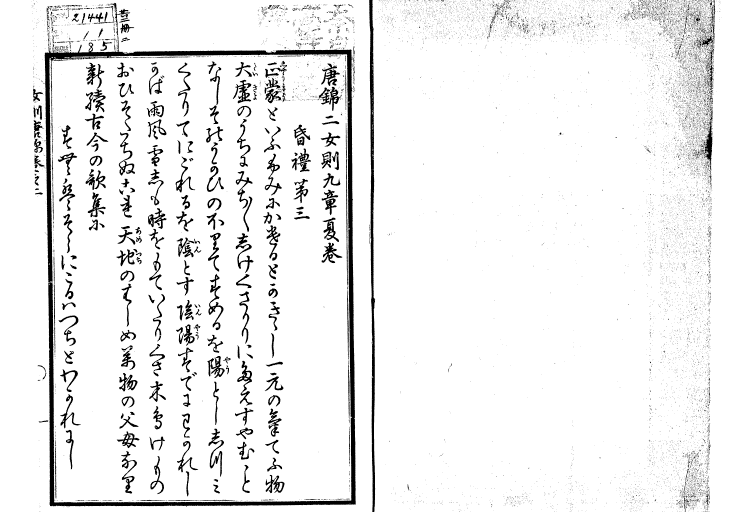 唐錦二女則九章夏巻
昏禮第三
正蒙といふふみにかけるとかきし一元の氣てふ物
大虚のうちにみち〳〵しけくさかりにたえすやむこと
なしそれうかひのぼりてすめるを陽とし志川ミ
くたりてにごれるを陰とす陰陽すでにわかれし
かば雨風雪志も時をもていたりくさ木鳥けもの
おひそたちぬこれ天地のはしめ萬物の父母なり
新續古今の歌集に
そらにこるハつちとわかれにし
女則唐錦巻之二
21441
11
185